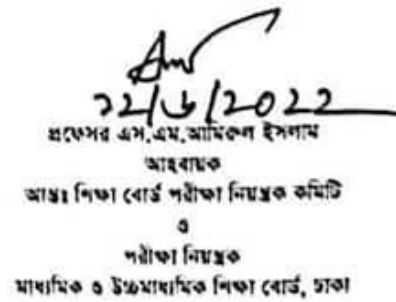 ২২/৬/2022
প্রফেসর এস.এম.আমিরুল ইসলাম
আহবায়ক
আন্তঃ শিক্ষা বোর্ড পরীক্ষা নিয়ন্ত্রক কমিটি
ও
পরীক্ষা নিয়ন্ত্রক
মাধ্যমিক ও উচ্চমাধ্যমিক শিক্ষা বোর্ড, ঢাকা